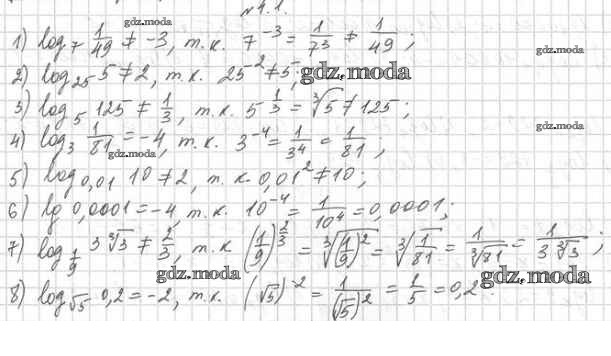 №4.1.
gdz.moda
1) log₇ 1/49 ≠ -3, т.к. 7⁻³ = 1/7³ ≠ 1/49;
2) log₂₅ 5 ≠ 2, т.к. 25⁻² ≠ 5;
gdz.moda
gdz.moda
3) log₅ 125 ≠ 1/3, т.к. 5^(1/3) = ∛5 ≠ 125;
4) log₃ 1/81 = -4, т.к. 3⁻⁴ = 1/3⁴ = 1/81;
gdz.moda
gdz.moda
5) log₀,₀₁ 10 ≠ 2, т.к. 0,01² ≠ 10;
6) lg 0,0001 = -4, т.к. 10⁻⁴ = 1/10⁴ = 0,0001;
gdz.moda
7) log_(1/9) 3∛3 ≠ 2/3, т.к. (1/9)^(2/3) = ∛((1/9)²) = ∛(1/81) = 1/∛81 = 1/(3∛3);
gdz.moda
gdz.moda
8) log_√5 0,2 = -2, т.к. (√5)⁻² = 1/(√5)² = 1/5 = 0,2